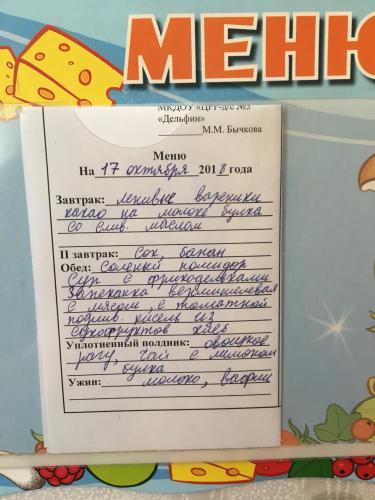 МЕНЮ
МКДОУ «ЦРР-д/с №5
«Дельфин»
М.М. Бычкова
Меню
На 17 октября 2018 года
Завтрак: ленивые вареники
какао на молоке булка
со слив. маслом
II завтрак: Сок, банан
Обед: Соленый помидор
Суп с фрикадельками
Запеканка вермишелевая
с мясом с томатной
подлив. кисель из
сухофруктов хлеб
Уплотненный полдник: овощное
рагу, чай с лимоном
булка
Ужин: молоко, вафли